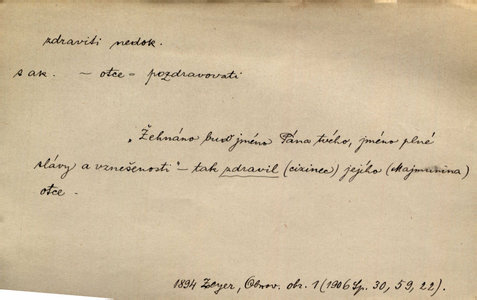 zdraviti nedok.
s ak. – otce = pozdravovati
„Žehnáno buď jméno Pána tvého, jméno plné
slávy a vznešenosti" – tak zdravil (cizinec) jejího (Majmunina)
otce.
1894 Zeyer, Obnov. obr. 1 (1906 Sp. 30, 59, 22).